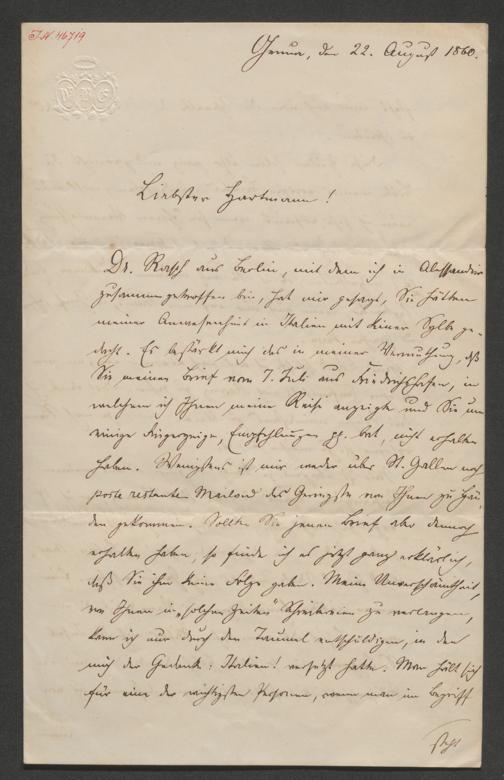 I.N. 46719
Genua, den 22. August 1860.
Liebster Hartmann!
Dr. Rasch aus Berlin, mit dem ich in Alessandria
zusammengetroffen bin, hat mir gesagt, Sie hätten
meiner Anwesenheit in Italien mit keiner Sylbe ge-
dacht. Es bestärkt mich das in meiner Vermuthung, daß
Sie meinen Brief vom 7. Juli aus Friedrichshafen, in
welchem ich Ihnen meine Reise anzeigte und Sie um
einige Fingerzeige, Empfehlungen pp. bat, nicht erhalten
haben. Wenigstens ist mir weder über St. Gallen noch
poste restante Mailand das Geringste von Ihnen zu Hän-
den gekommen. Sollten Sie jenen Brief aber dennoch
erhalten haben, so finde ich es jetzt ganz erklärlich,
daß Sie ihm keine Folge gaben. Meine Unverschämtheit,
von Ihnen in „solchen Zeiten" Schreibereien zu verlangen,
kann ich nur durch den Taumel entschuldigen, in den
mich der Gedanke: Italien! versetzt hatte. Man hält sich
für eine der wichtigsten Personen, wenn man im Begriff
steht